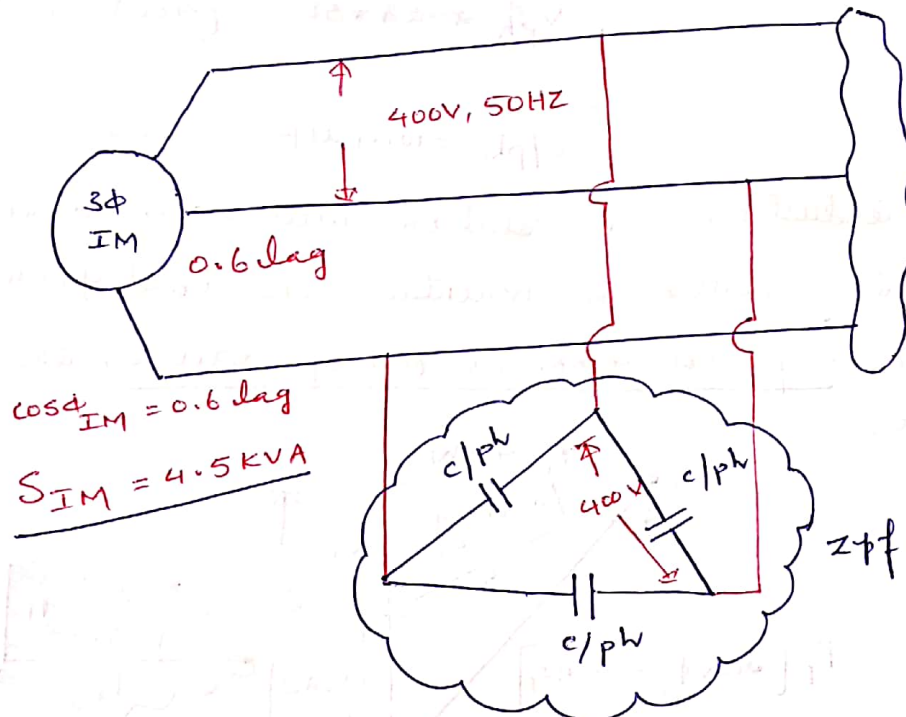 400V, 50HZ
3ϕ
IM
0.6 lag
cosϕIM = 0.6 lag
SIM = 4.5 KVA
c/ph
c/ph
400V
zpf
c/ph